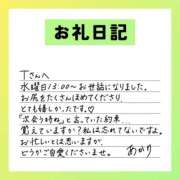 お礼日記
Tさんへ
水曜日13:00〜お世話になりました。
お尻をたくさんほめてくださり
とても嬉しかったです♡
「次会う時ね」と言っていた約束
覚えていますか?私は忘れてないですよ。
お忙しいとは思いますが、
どうかご自愛くださいませ。
あかり